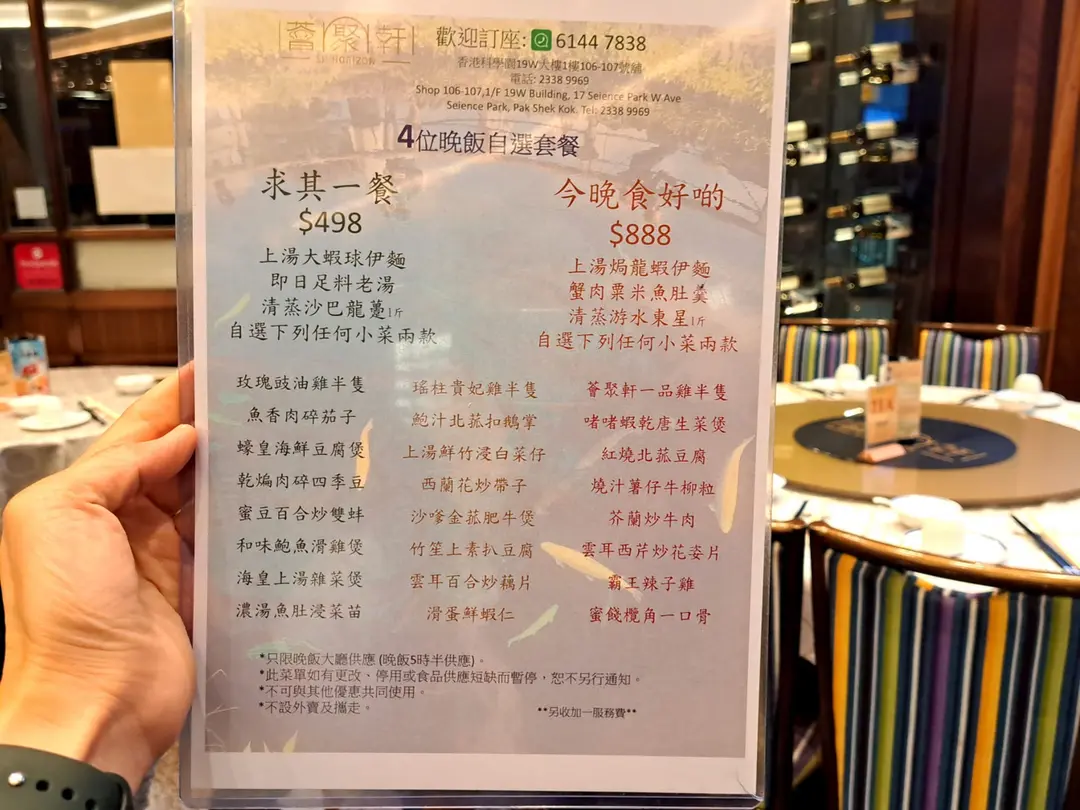 薈聚軒
歡迎訂座: 6144 7838
香港科學園19W大樓1樓106-107號舖
電話: 2338 9969
Shop 106-107,1/F 19W Building, 17 Seience Park W Ave
Seience Park, Pak Shek Kok. Tel: 2338 9969
4位晚飯自選套餐
求其一餐
$498
上湯大蝦球伊麵
即日足料老湯
清蒸沙巴龍躉1斤
自選下列任何小菜兩款
今晚食好啲
$888
上湯焗龍蝦伊麵
蟹肉粟米魚肚羹
清蒸游水東星1斤
自選下列任何小菜兩款
玫瑰豉油雞半隻
魚香肉碎茄子
蠔皇海鮮豆腐煲
乾煸肉碎四季豆
蜜豆百合炒雙蚌
和味鮑魚滑雞煲
海皇上湯雜菜煲
濃湯魚肚浸菜苗
瑤柱貴妃雞半隻
鮑汁北菰扣鵝掌
上湯鮮竹浸白菜仔
西蘭花炒帶子
沙嗲金菰肥牛煲
竹笙上素扒豆腐
雲耳百合炒藕片
滑蛋鮮蝦仁
薈聚軒一品雞半隻
啫啫蝦乾唐生菜煲
紅燒北菰豆腐
燒汁薯仔牛柳粒
芥蘭炒牛肉
雲耳西芹炒花姿片
霸王辣子雞
蜜餞欖角一口骨
*只限晚飯大廳供應 (晚飯5時半供應)。
*此菜單如有更改、停用或食品供應短缺而暫停，恕不另行通知。
*不可與其他優惠共同使用。
*不設外賣及攜走。
**另收加一服務費**